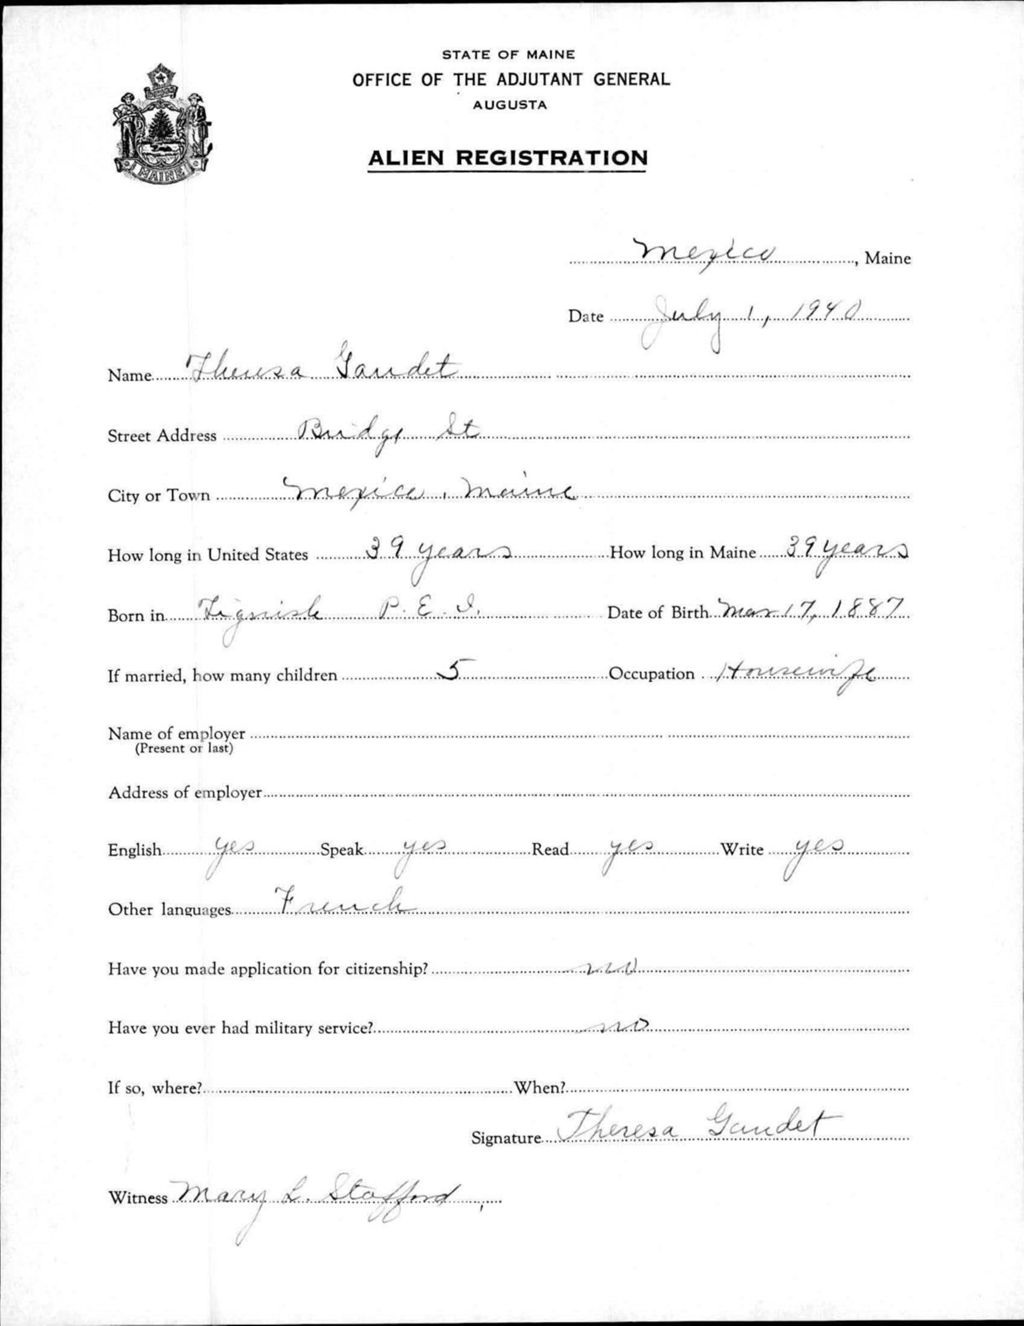 STATE OF MAINE
OFFICE OF THE ADJUTANT GENERAL
AUGUSTA
ALIEN REGISTRATION
MAINE
Mexico, Maine
Date July 1, 1940
Name Theresa Gaudet
Street Address Bridge St
City or Town Mexico, Maine
How long in United States 39 years How long in Maine 39 years
Born in Tignish P. E. I. Date of Birth Mar 17, 1887
If married, how many children 5 Occupation Housewife
Name of employer
(Present or last)
Address of employer
English yes Speak yes Read yes Write yes
Other languages French
Have you made application for citizenship? no
Have you ever had military service? no
If so, where? When?
Signature Theresa Gaudet
Witness Mary L. Stafford